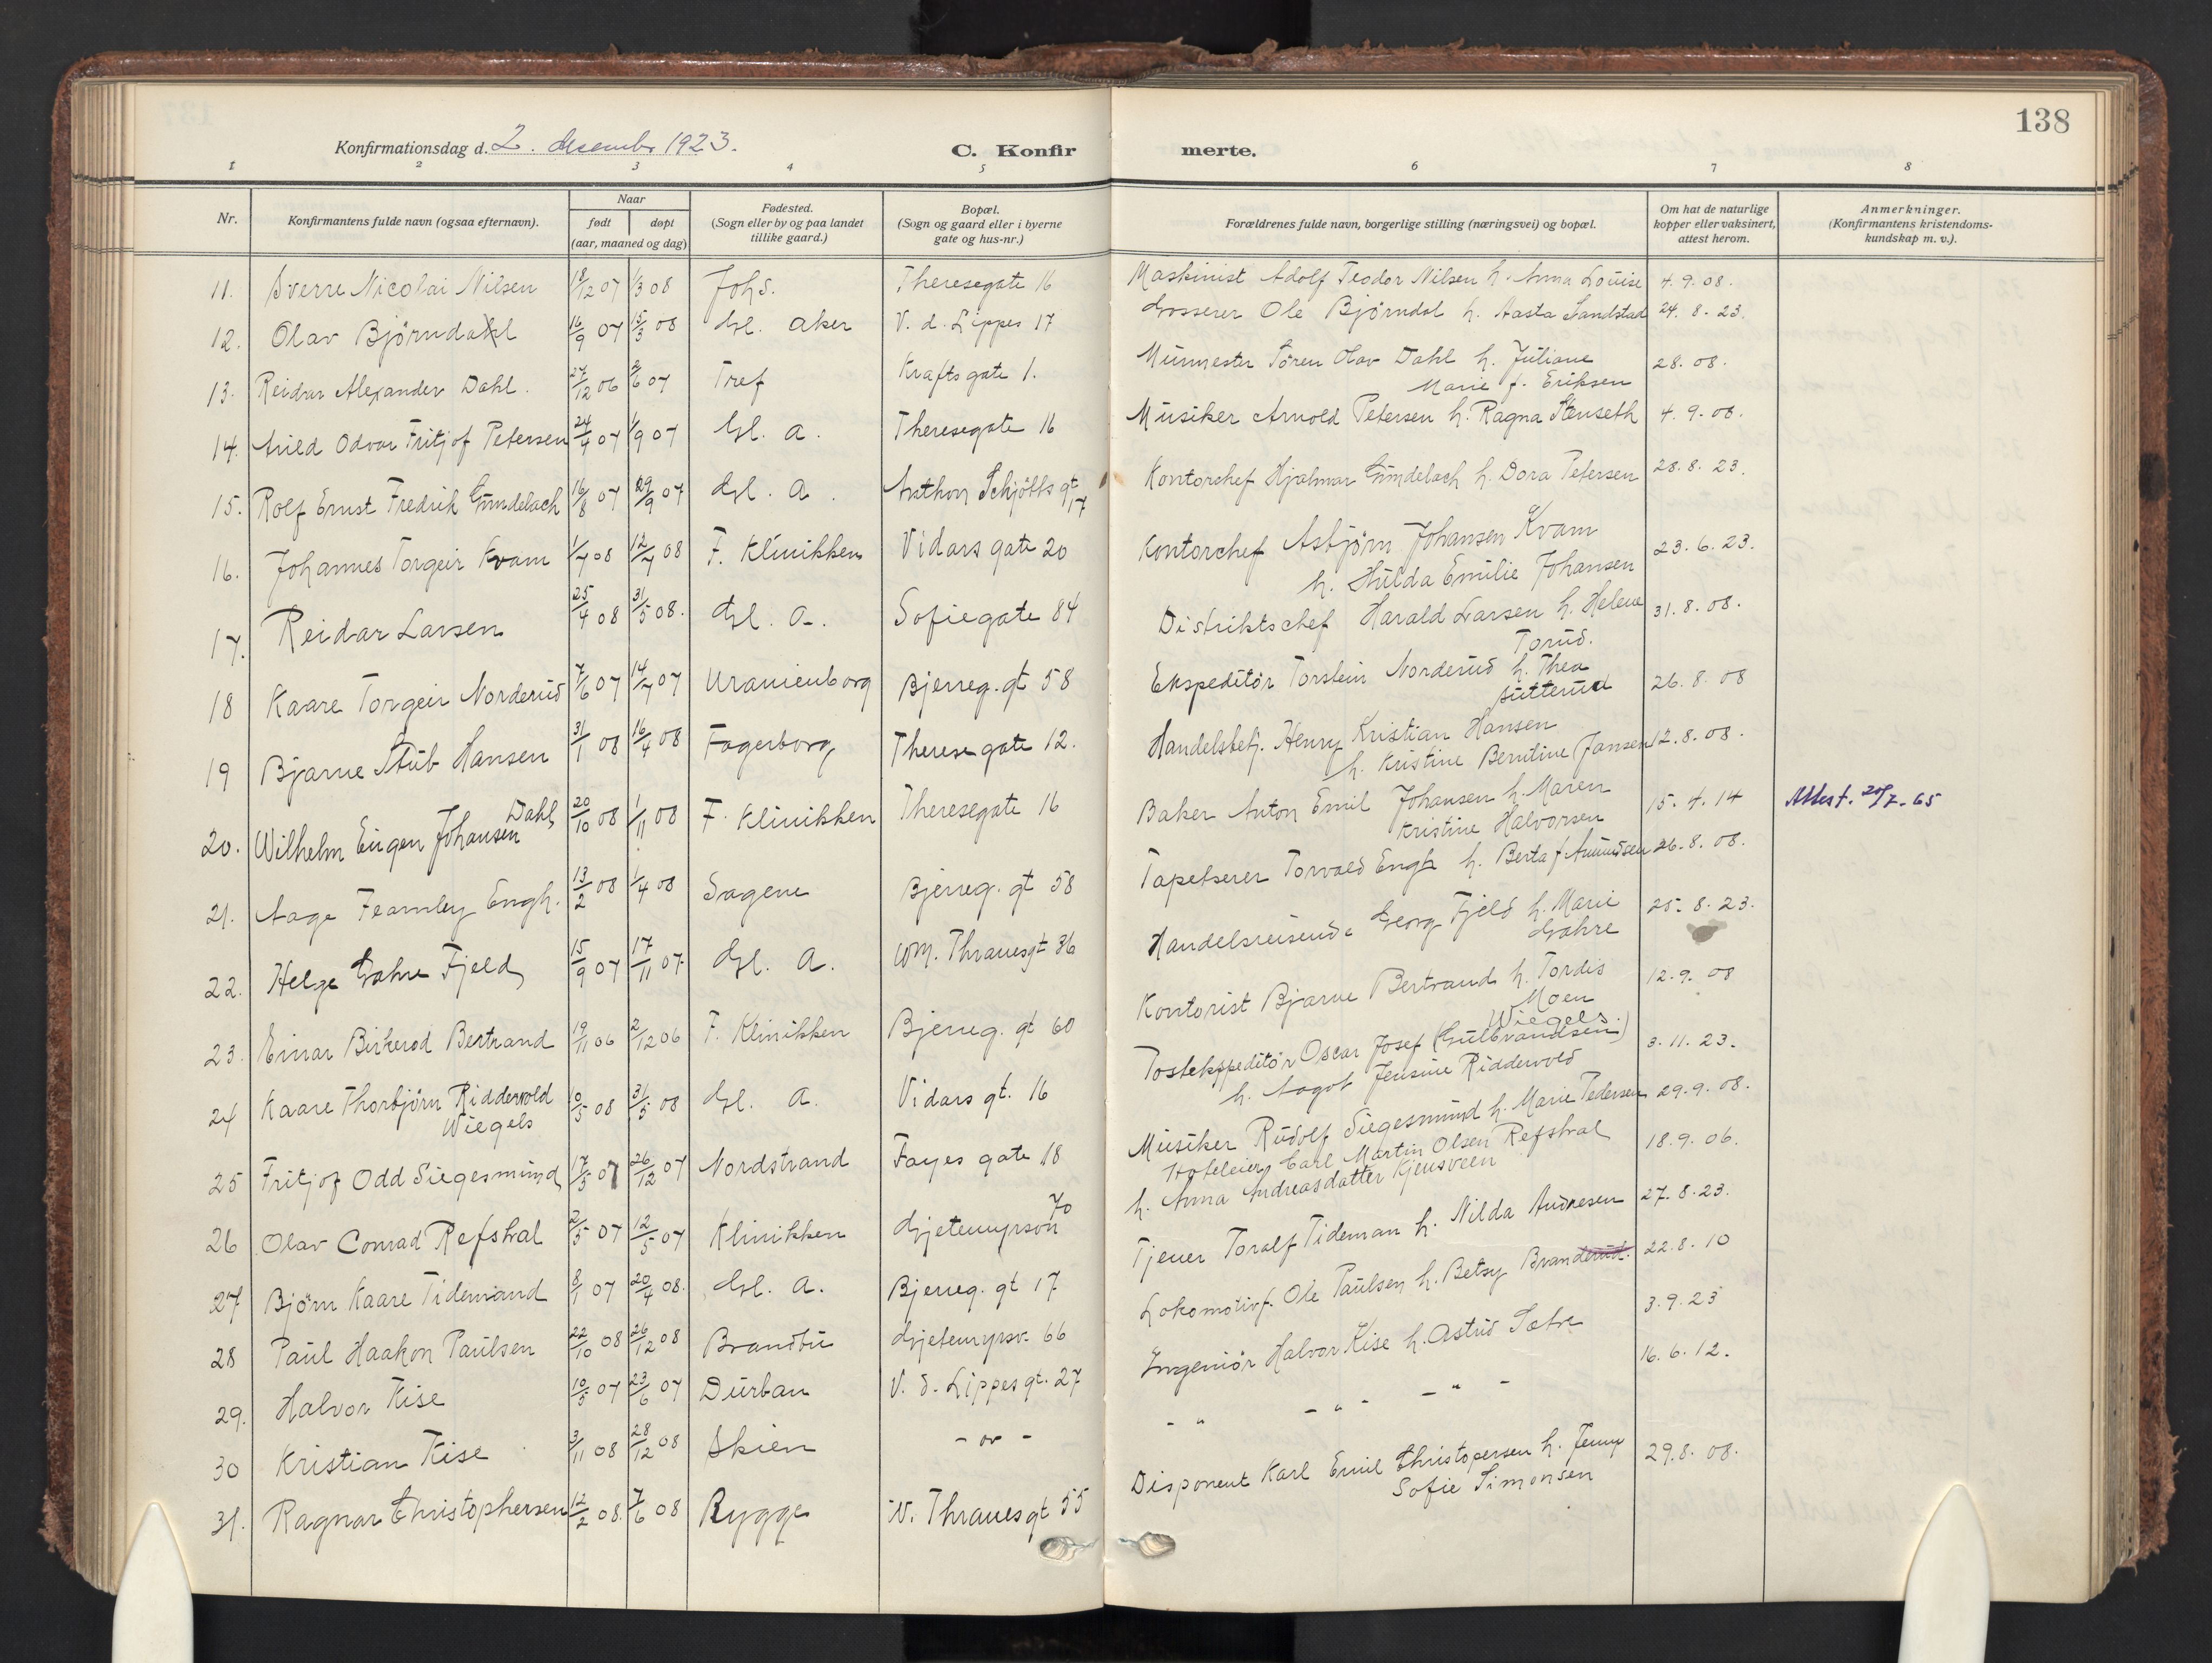 138
Konfirmationsdag d. 2. desember 1923.
C. Konfir merte.
1 2 3 4 5 6 7 8
Nr.
Konfirmantens fulde navn (ogsaa efternavn).
Naar
født døpt
(aar, maaned og dag)
Fødested.
(Sogn eller by og paa landet
tillike gaard.)
Bopæl.
(Sogn og gaard eller i byerne
gate og hus-nr.)
Forældrenes fulde navn, borgerlige stilling (næringsvei) og bopæl.
Om hat de naturlige
kopper eller vaksinert,
attest herom.
Anmerkninger.
(Konfirmantens kristendoms-
kundskap m. v.).
11. Sverre Nicolai Nilsen 18/12 07 1/3 08 Johs. Theresegate 16 Maskinist Adolf Teodor Nilsen h. Anna Louise 4.9.08.
12. Olav Bjørndahl 16/9 07 15/3 08 Gl. Aker V. d. Lippes 17 Grosserer Ole Bjørndal h. Aasta Sandstad 24.8.23.
13. Reidar Alexander Dahl. 27/12 06 2/6 07 Tref Krafts gate 1. Murmester Søren Olav Dahl h. Juliane
Marie f. Eriksen 28.08.
14. Arild Odvar Fritjof Petersen 24/4 07 1/9 07 Gl. A. Theresegate 16 Musiker Arnold Petersen h. Ragna Stenseth 4.9.08.
15. Rolf Ernst Fredrik Gundelach 16/8 07 29/9 07 Gl. A. Anthon Schjøtts gt 17 Kontorchef Hjalmar Gundelach h. Dora Petersen 28.8.23.
16. Johannes Torgeir Kvam 1/7 08 12/7 08 F. Klinikken Vidars gate 20 Kontorchef Asbjørn Johansen Kvam
h. Hulda Emilie Johansen 23.6.23.
17. Reidar Larsen 25/4 08 31/5 08. Gl. A. Sofiegate 84 Distriktschef Harald Larsen h. Helene
Torud. 31.8.08.
18 Kaare Torgeir Norderud 7/6 07 14/7 07 Uranienborg Bjerreg. gt 58 Ekspeditør Torstein Norderud h. Thea
Sutterud 26.8.08
19 Bjarne Stub Hansen 31/1 08 16/4 08 Fagerborg Therese gate 12. Handelsbetj. Henry Kristian Hansen
h. Kristine Berntine Jansen 12.8.08.
20. Wilhelm Eugen Johansen Dahl 20/10 08 1/11 08 F. Klinikken Theresegate 16 Baker Anton Emil Johansen h. Maren
Kristine Halvorsen 15.4.14 Attest. 20/7-65
21. Aage Fearnley Engh. 13/2 08 1/4 08 Sagene Bjerreg. gt 58 Tapetserer Torvald Engh h. Berta f. Amundsen 26.8.08.
22. Helge Gahre Fjeld 15/9 07 17/11 07. Gl. A. WM. Thranesgt 36 Handelsreisende Georg Fjeld h. Marie
Gahre 25.8.23.
23. Einar Birkerod Bertrand 19/11 06 2/12 06 F. Klinikken Bjerreg. gt 60 Kontorist Bjarne Bertrand h. Tordis
Moen 12.9.08
24 Kaare Thorbjørn Riddervold
Wiegels 10/5 08 31/5 08 Gl. A. Vidars gt. 16 Postekspeditør Oscar Josef (Gulbrandsen) Wiegels.
h. Aagot Jensine Riddervold 3.11.23.
25 Fritjof Odd Siegesmund 17/5 07 26/12 07 Nordstrand Fayes gate 18 Musiker Rudolf Siegesmund h. Marie Pedersen 29.9.08.
26 Olav Conrad Refstral 2/5 07 12/5 07 Klinikken Gjetemyrsvn 70 Hoteleier Carl Martin Olsen Refstral
h. Anna Andreasdatter Kjensveen 18.9.06.
27 Bjørn Kaare Tidemand 8/1 07 20/4 08. Gl. A. Bjerreg. gt 17 Tjener Toralf Tideman h. Nilda Andresen 27.8.23.
28 Paul Haakon Paulsen 22/10 08 26/12 08 Brandbu Gjetemyrsv. 66 Lokomotivf. Ole Paulsen h. Betsy Branderud. 22.8.10
29. Halvor Kise 10/5 07 23/6 07 Durban V. d. Lippesgt. 27 Ingeniør Halvor Kise h. Astrid Sætre 3.9.23
30 Kristian Kise 3/11 08 28/12 08 Skien - " - - " - - " - - " - 16.6.12.
31. Ragnar Christophersen 12/2 08. 7/6 08 Rygge W. Thranesgt 55 Disponent Karl Emil Christopersen h. Jenny
Sofie Simonsen 29.8.08.